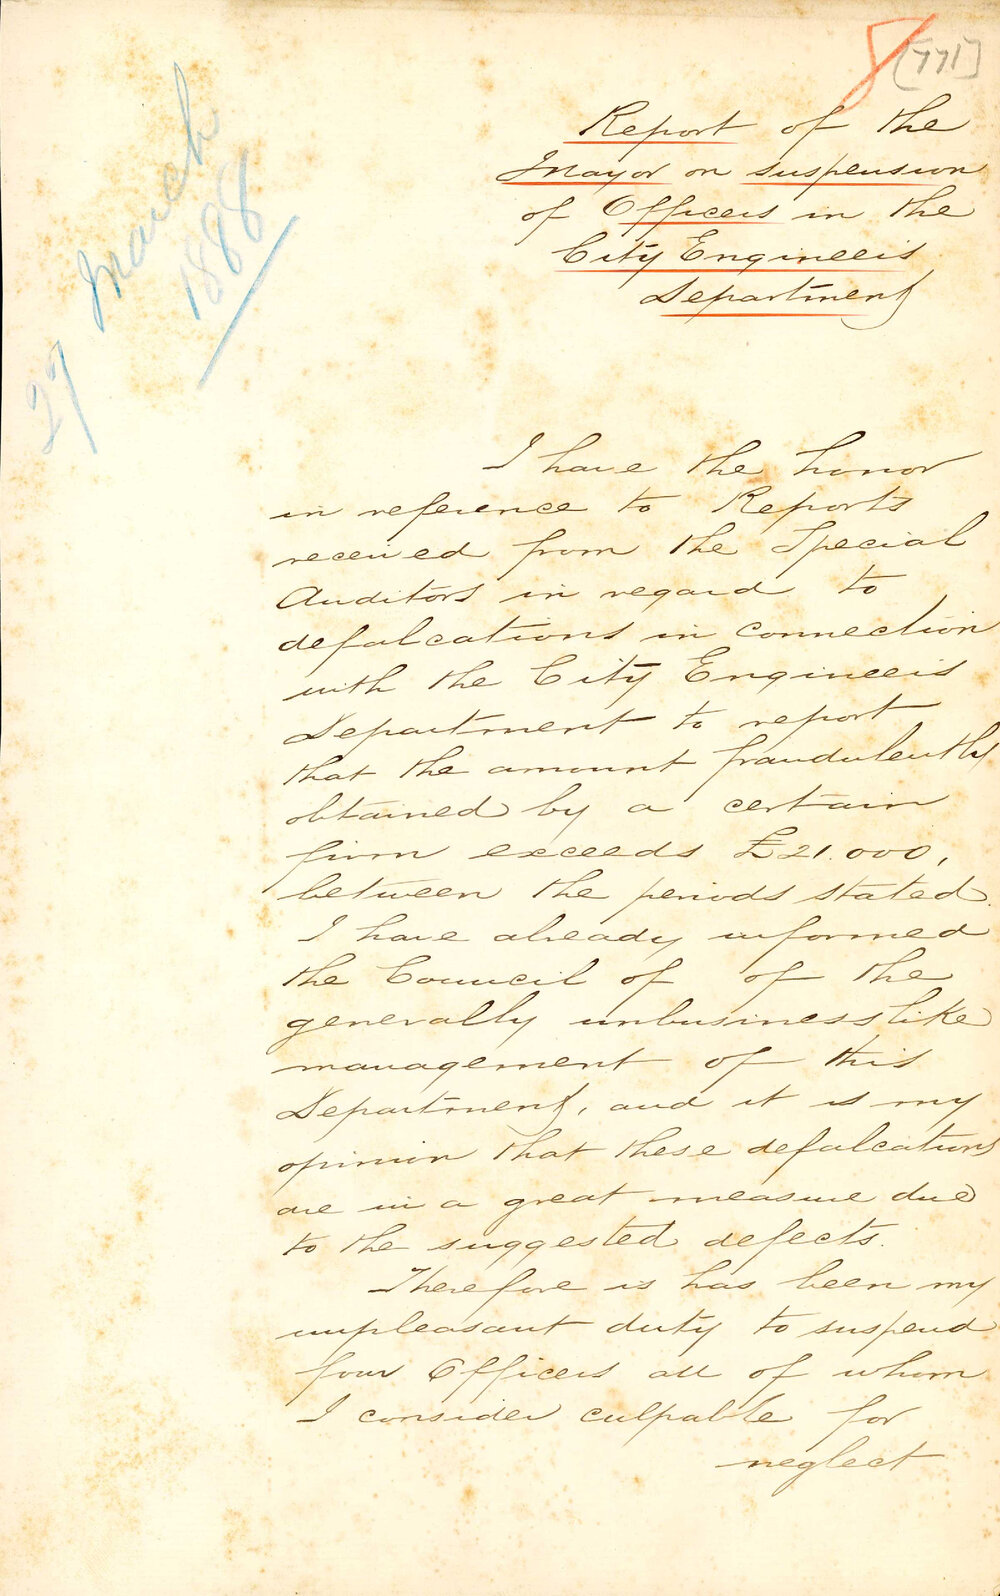 8 [771]
27 March
1888
Report of the
Mayor on suspension
of Officers in the
City Engineers
Department
I have the honor
in reference to Reports
received from the Special
Auditors in regard to
defalcations in connection
with the City Engineers
Department to report
that the amount fraudulently
obtained by a certain
firm exceeds £21.000,
between the periods stated.
I have already informed
the Council of of the
generally unbusinesslike
management of this
Department, and it is my
opinion that these defalcations
are in a great measure due
to the suggested defects.
Therefore is has been my
unpleasant duty to suspend
four Officers all of whom
I consider culpable for
neglect